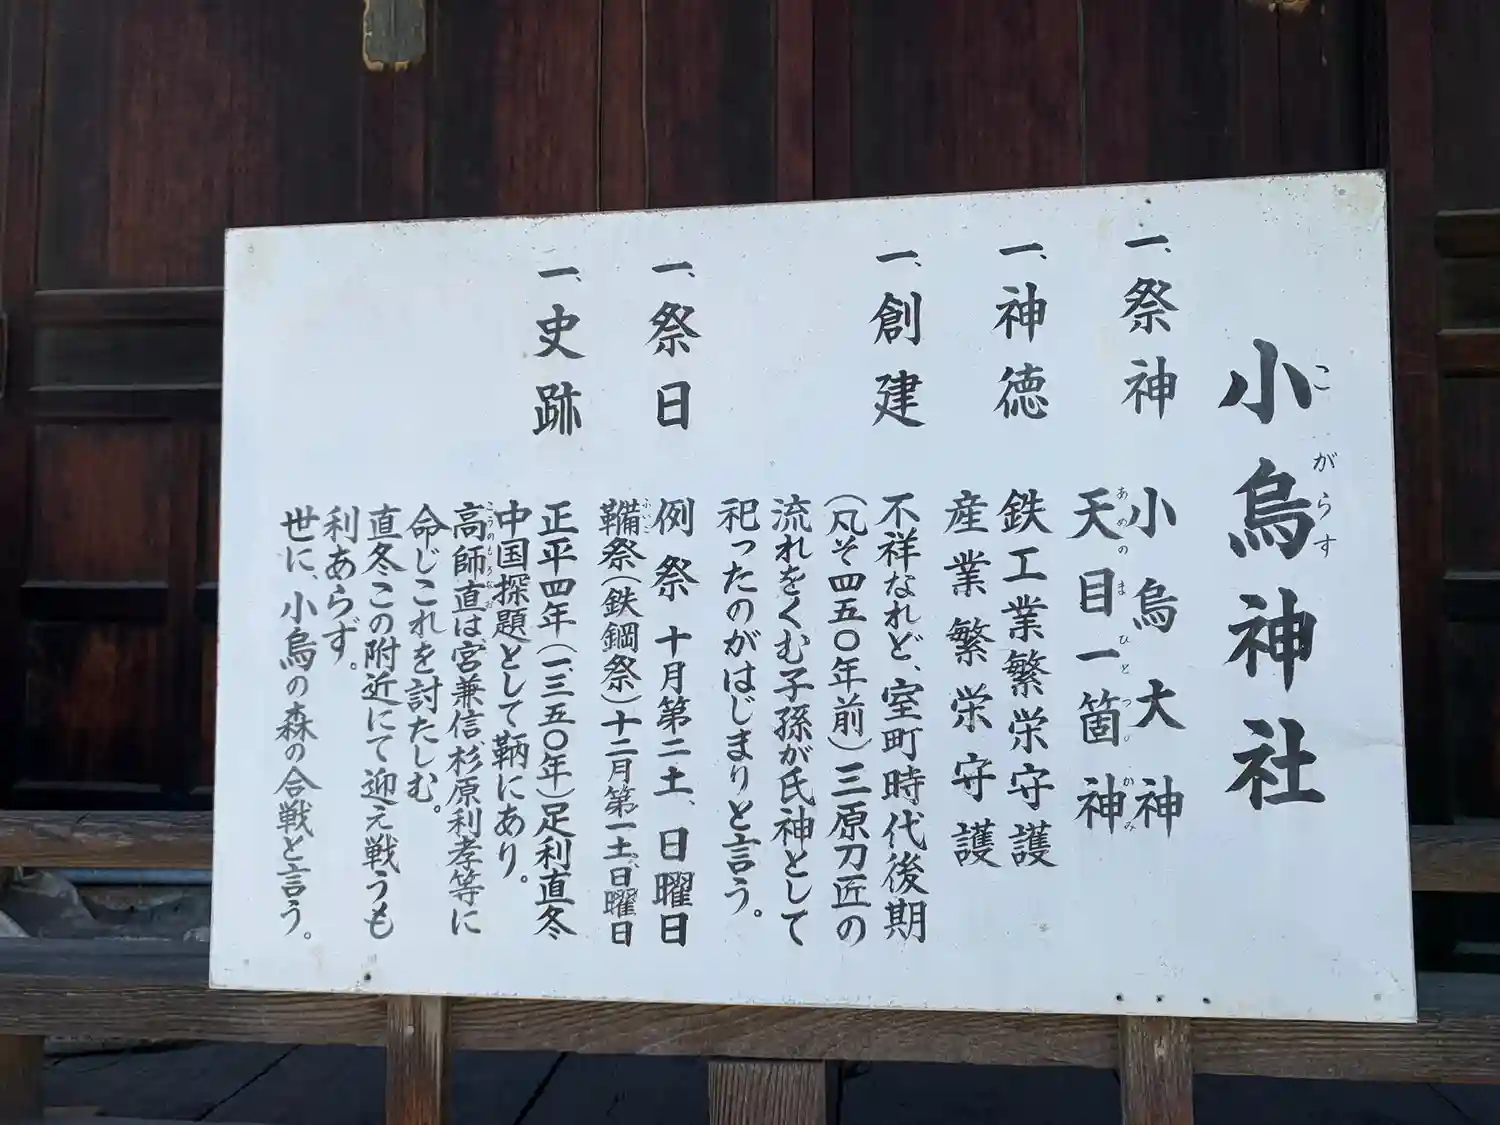 小烏神社
こがらす
一、祭神
小烏大神
天目一箇神
あめのまひとつかみ
一、神徳
鉄工業繁栄守護
産業繁栄守護
一、創建
不祥なれど、室町時代後期
(凡そ四五〇年前)三原刀匠の
流れをくむ子孫が氏神として
祀ったのがはじまりと言う。
一、祭日
例祭 十月第二土、日曜日
鞴祭(鉄鋼祭)十二月第一土、日曜日
ふいご
一、史跡
正平四年(一、三五〇年)足利直冬
中国探題として鞆にあり。
高師直は宮兼信、杉原利孝等に
こうのもろなお
命じこれを討たしむ。
直冬この附近にて迎え戦うも
利あらず。
世に、小烏の森の合戦と言う。